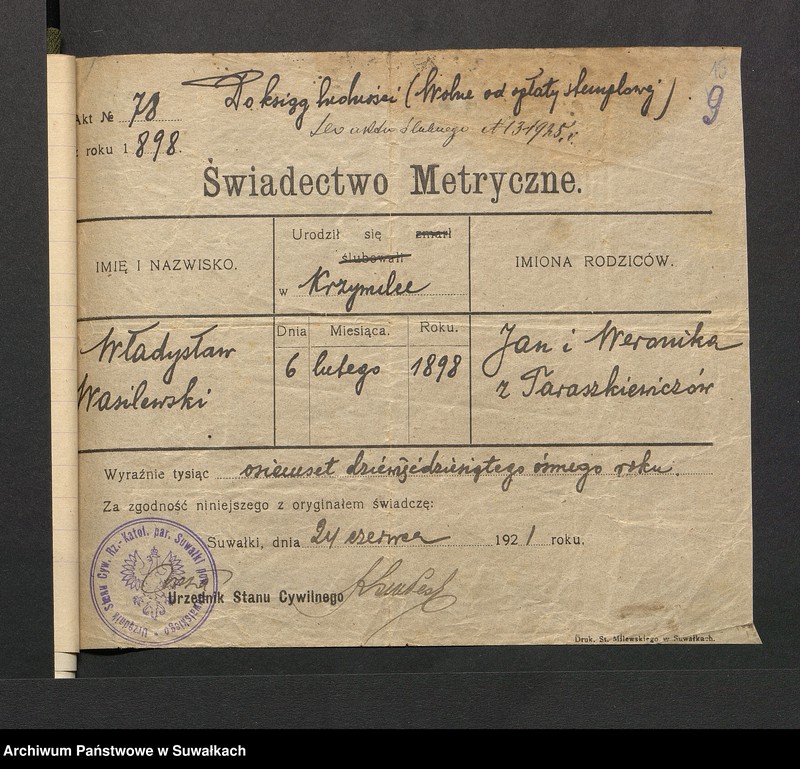 15
9
Akt № 78
roku 1898.
Do ksiąg ludności (Wolne od opłaty stemplowej).
Do aktu ślubnego № 13-1925 r.
Świadectwo Metryczne.
IMIĘ I NAZWISKO.
Urodził się zmarł
ślubowali
w Krzywulce
IMIONA RODZICÓW.
Dnia Miesiąca. Roku.
Władysław
Wasilewski
6 lutego 1898
Jan i Weronika
z Taraszkiewiczów
Wyraźnie tysiąc osiemset dziewięćdziesiątego ósmego roku.
Za zgodność niniejszego z oryginałem świadczę:
Suwałki, dnia 24 czerwca 1921 roku.
Urzędnik Stanu Cyw. Rz.-Katol. par. Suwałki pow. Suwalskiego
Urzędnik Stanu Cywilnego
Druk. St. Milewskiego w Suwałkach.
Archiwum Państwowe w Suwałkach